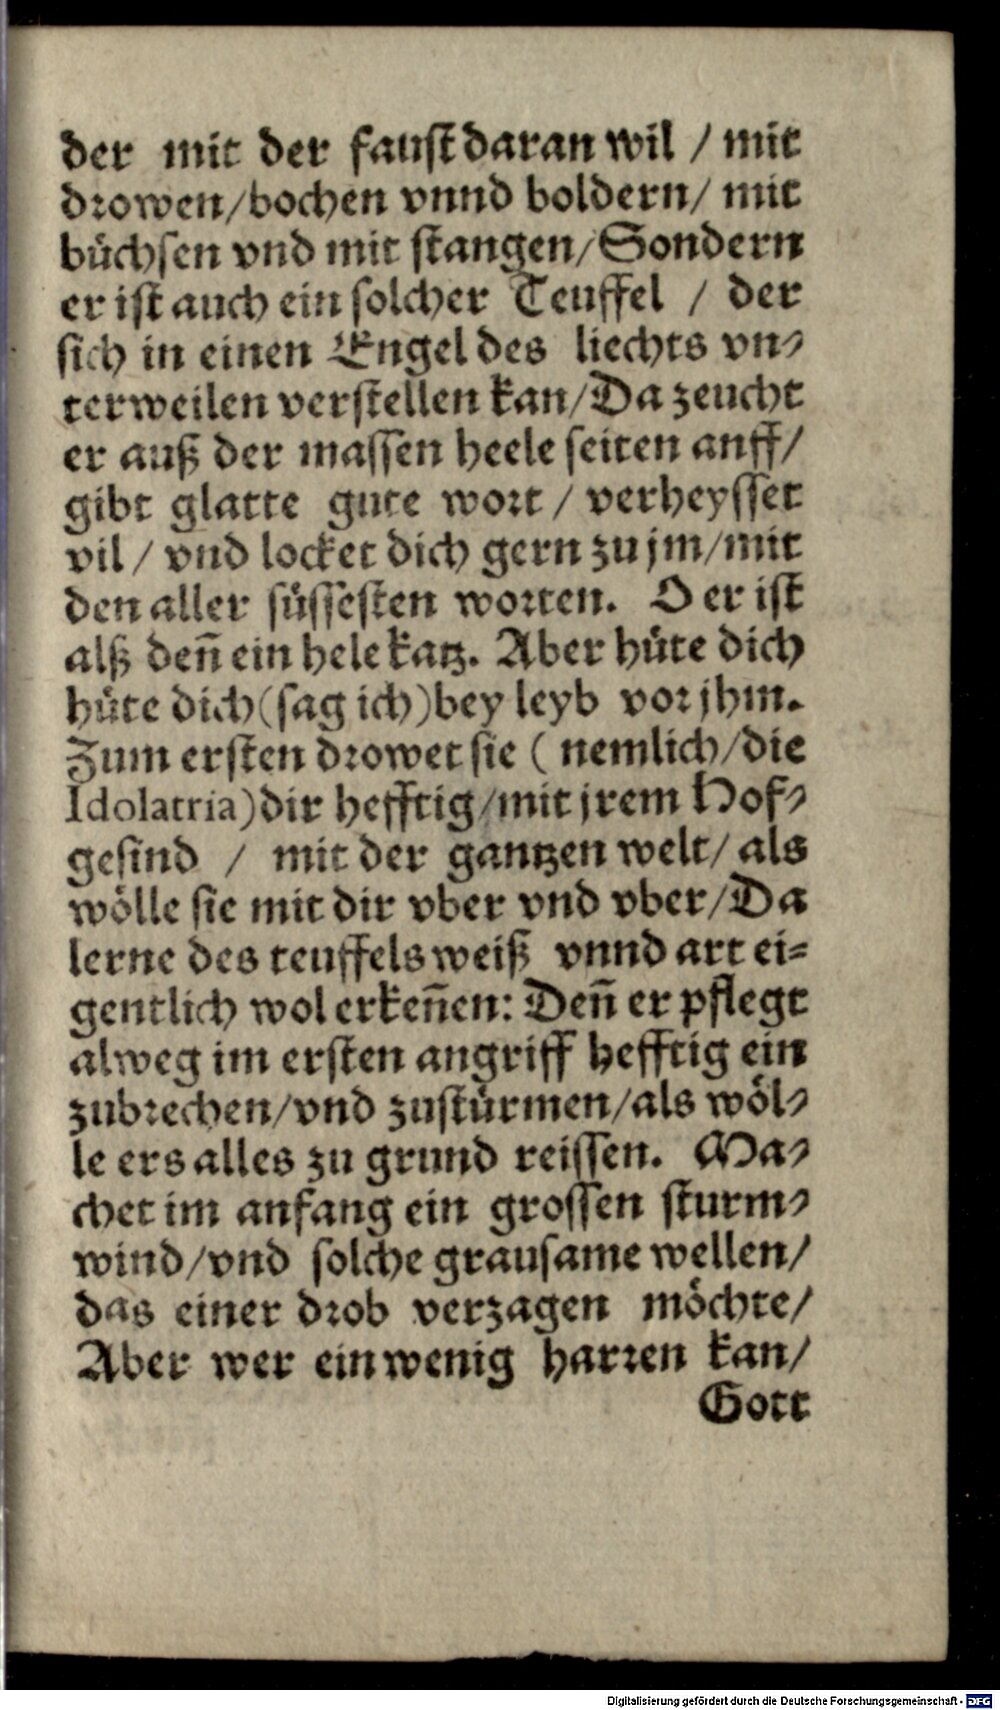 der mit der faust daran wil / mit
drowen/bochen vnnd boldern/ mit
büchsen vnd mit stangen/Sondern
er ist auch ein solcher Teuffel / der
sich in einen Engel des liechts vn⸗
terweilen verstellen kan/Da zeucht
er auß der massen heele seiten auff/
gibt glatte gute wort / verheysset
vil / vnd locket dich gern zu jm/mit
den aller süssesten worten. O er ist
alß deñ ein hele katz. Aber hüte dich
hüte dich(sag ich)bey leyb vor jhm.
Zum ersten drowet sie ( nemlich/die
Idolatria)dir hefftig/mit jrem Hof⸗
gesind / mit der gantzen welt/ als
wölle sie mit dir vber vnd vber/Da
lerne des teuffels weiß vnnd art ei⸗
gentlich wol erkeñen: Deñ er pflegt
alweg im ersten angriff hefftig ein
zubrechen/vnd zustürmen/als wöl⸗
le ers alles zu grund reissen. Ma⸗
chet im anfang ein grossen sturm⸗
wind/vnd solche grausame wellen/
das einer drob verzagen möchte/
Aber wer ein wenig harren kan/
Gott
Digitalisierung gefördert durch die Deutsche Forschungsgemeinschaft - DFG